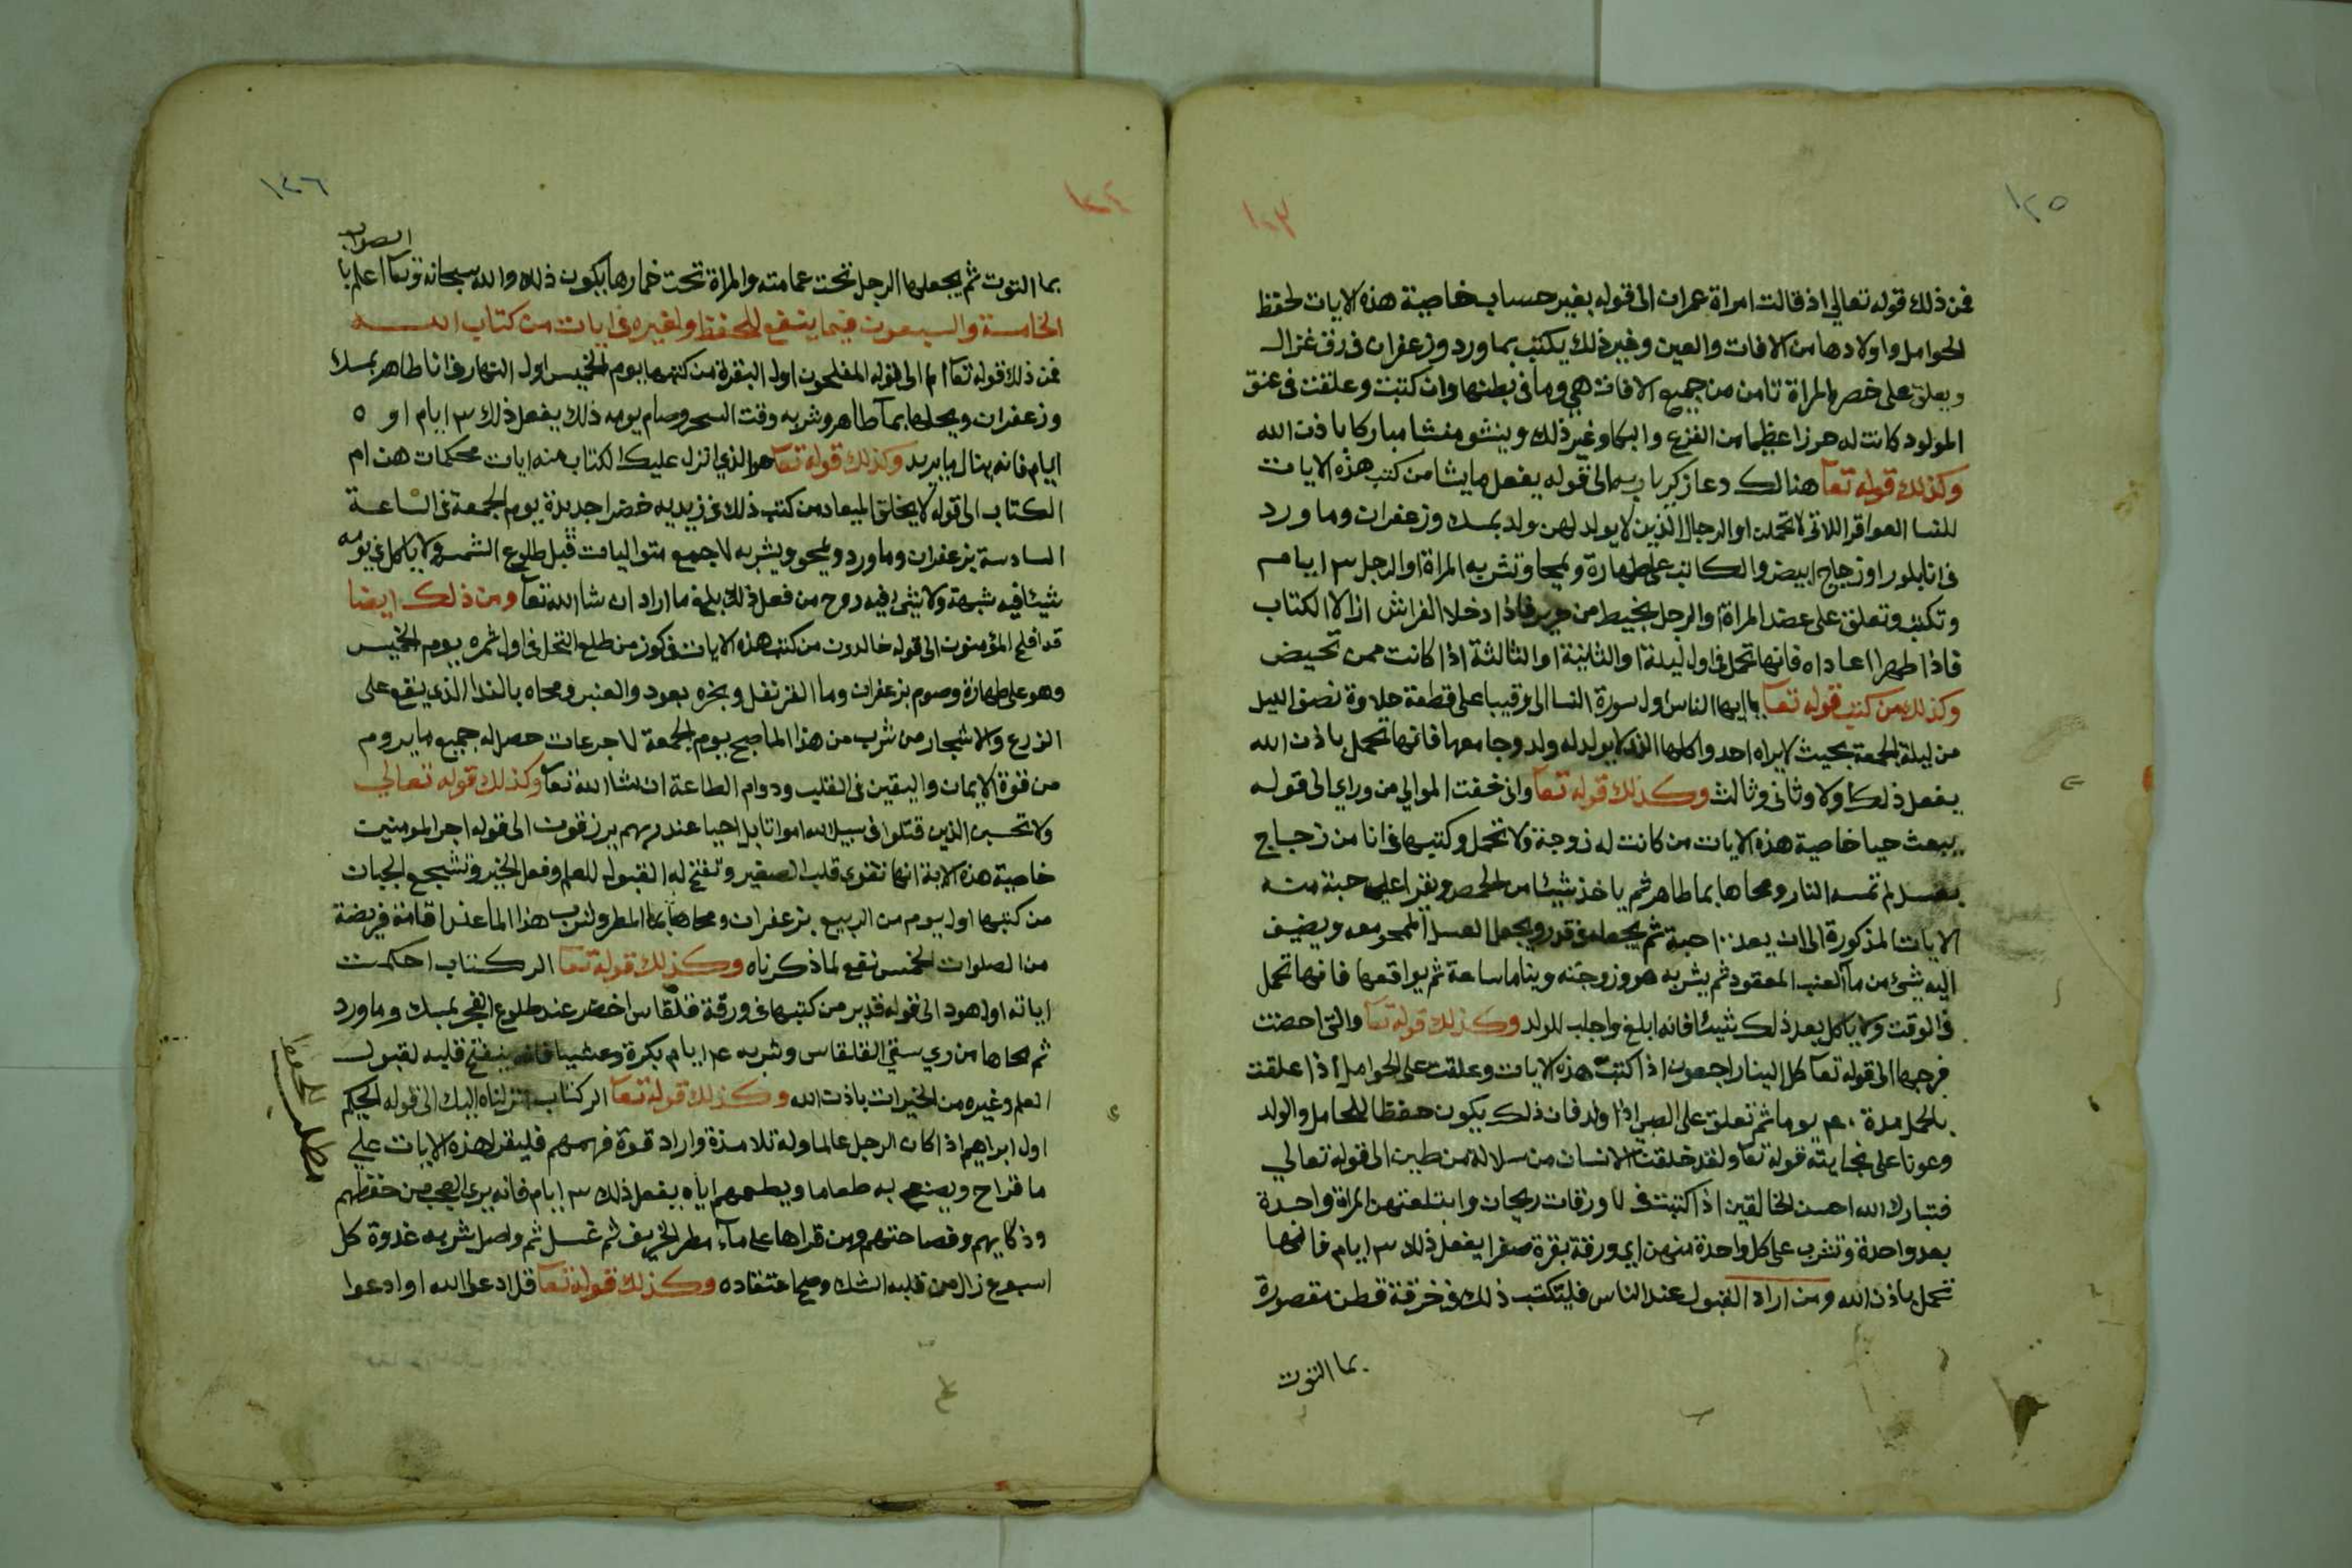 ١٢٥
١٢٣
فمن ذلك قوله تعالي اذ قالت امراة عمران الى قوله بغير حساب خاصية هذه الايات لحفظ
الحوامل واولادها من الافات والعين وغير ذلك يكتب بماورد وزعفران فى رق غزال
ويعلق على خصر المراة تامن من جميع الافات هي وما فى بطنها وان كتبت وعلقت فى عنق
المولود كانت له حرزا عظيما من الفزع والبكا وغير ذلك وينشو منشا مباركا باذن الله
وكذلك قوله تعا هنالك دعا زكريا ربه الى قوله يفعل ما يشا من كتب هذه الايات
للنسا العواقر اللاتى لا تحملن او الرجال الذين لا يولد لهن ولد بمسك وزعفران وماورد
فى انا بلور او زجاج ابيض والكاتب على طهارة ويمحا وتشربه المراة او الرجل ٣ ايام
وتكتب وتعلق على عضد المراة او الرجل بخيط من حرير فاذا دخلا الفراش ازالا الكتاب
فاذا طهرا اعاداه فانها تحمل فى اول ليلة او الثانية او الثالثة اذا كانت ممن تحيض
وكذلك من كتب قوله تعا يا ايها الناس اول سورة النسا الى رقيبا على قطعة حلاوة نصف الليل
من ليلة الجمعة بحيث لا يراه احد واكلها الذى لا يولد له ولد وجامعها فانها تحمل باذن الله
يفعل ذلك اولا وثانى وثالث وكذلك قوله تعا وانى خفت الموالي من وراي الى قوله
يبعث حيا خاصية هذه الايات من كانت له زوجة ولا تحمل وكتبها فى انا من زجاج
بعسل لم تمسه النار ومحاها بما طاهر ثم ياخذ شيئا من الحمص ويقرا على حبة منه
الايات المذكورة الى ان يعد ١٠٠ حبة ثم يجعله فى قدر ويجعل العسل الممحو معه ويضيف
اليه شئ من مآ العنب المعقود ثم يشربه هو وزوجته ويناما ساعة ثم يواقعها فانها تحمل
فى الوقت ولا ياكل بعد ذلك شيئا فانه ابلغ واجلب للولد وكذلك قوله تعا والتى احصنت
فرجها الى قوله تعا كل الينا راجعون اذا كتبت هذه الايات وعلقت على الحوامل اذا علقت
بالحمل مدة ٤٠ يوما ثم تعلق على الصبي اذا ولد فان ذلك يكون حفظا للحامل والولد
وعونا على نجابته قوله تعا ولقد خلقنا الانسان من سلالة من طين الى قوله تعالي
فتبارك الله احسن الخالقين اذا كتبت فى ٧ ورقات ريحان وابتلعتهن المراة واحدة
بعد واحدة وتشرب على كل واحدة منهن اي ورقة بقرة صفرا يفعل ذلك ٣ ايام فانها
تحمل باذن الله ومن اراد القبول عند الناس فليكتب ذلك فى خرقة قطن مقصورة
بما التوت
١٢٦
١٢٤
بما التوت ثم يجعلها الرجل تحت عمامته والمراة تحت خمارها يكون ذلك والله سبحانه وتعا اعلم با
الصواب
الخامسة والسبعون فيما ينفع للحفظ ولغيره فى ايات من كتاب الله
فمن ذلك قوله تعا الم الى قوله المفلحون اول البقرة من كتبها يوم الخميس اول النهار فى انا طاهر بمسك
وزعفران ويحلها بمآ طاهر وشربه وقت السحر وصام يومه ذلك يفعل ذلك ٣ ايام او ٥
ايام فانه ينال ما يريد وكذلك قوله تعا هو الذي انزل عليك الكتاب منه ايات محكمات هن ام
الكتاب الى قوله لا يخلف الميعاد من كتب ذلك فى زبديه خضرا جديدة يوم الجمعة فى الساعة
السادسة بزعفران وماورد ويمحو ويشربه ٧ جمع متواليات قبل طلوع الشمس ولا ياكل فى يومه
شيئا فيه شبهة ولا شئ فيه روح من فعل ذلك بلغ ما اراد ان شا الله تعا ومن ذلك ايضا
قد افلح المؤمنون الى قوله خالدون من كتب هذه الايات فى كوز من طلع النخل فى اول ثمره يوم الخميس
وهو على طهارة وصوم بزعفران وما القرنفل وبخره بعود والعنبر ومحاه بالندا الذي يقع على
الزرع والاشجار من شرب من هذا الما صبح يوم الجمعة ٧ جرعات حصل له جميع ما يروم
من قوة الايمان واليقين فى القلب ودوام الطاعة ان شا الله تعا وكذلك قوله تعالي
ولا تحسبن الذين قتلوا فى سبيل الله امواتا بل احيا عند ربهم يرزقون الى قوله اجر المومنين
خاصية هذه الاية انها تقوى قلب الصغير وتفتح له القبول للعلم وفعل الخير وتشجع الجبان
من كتبها اول يوم من الربيع بزعفران ومحاها بما المطر وشرب هذا الما عند اقامة فريضة
من الصلوات الخمس نفع لما ذكرناه وكذلك قوله تعا الر كتاب احكمت
اياته اول هود الى قوله قدير من كتبها فى ورقة قلقاس اخضر عند طلوع الفجر بمسك وماورد
ثم محاها من ري سقي القلقاس وشربه ٤ ايام بكرة وعشيا فانه ينفتح قلبه لقبول
العلم وغيره من الخيرات باذن الله وكذلك قوله تعا الر كتاب انزلناه اليك الى قوله الحكيم
اول ابراهيم اذا كان الرجل عالما وله تلامذة واراد قوة فهمهم فليقرا هذه الايات علي
ما قراح ويصنع به طعاما ويطعمهم اياه يفعل ذلك ٣ ايام فانه يري العجب من حفظهم
وذكايهم وفصاحتهم ومن قراها على مآء مطر الخريف ثم غسل ثم واصل شربه غدوة كل
اسبوع زال من قلبه الشك وصح اعتقاده وكذلك قوله تعا قل ادعوا الله او ادعوا
مطلب